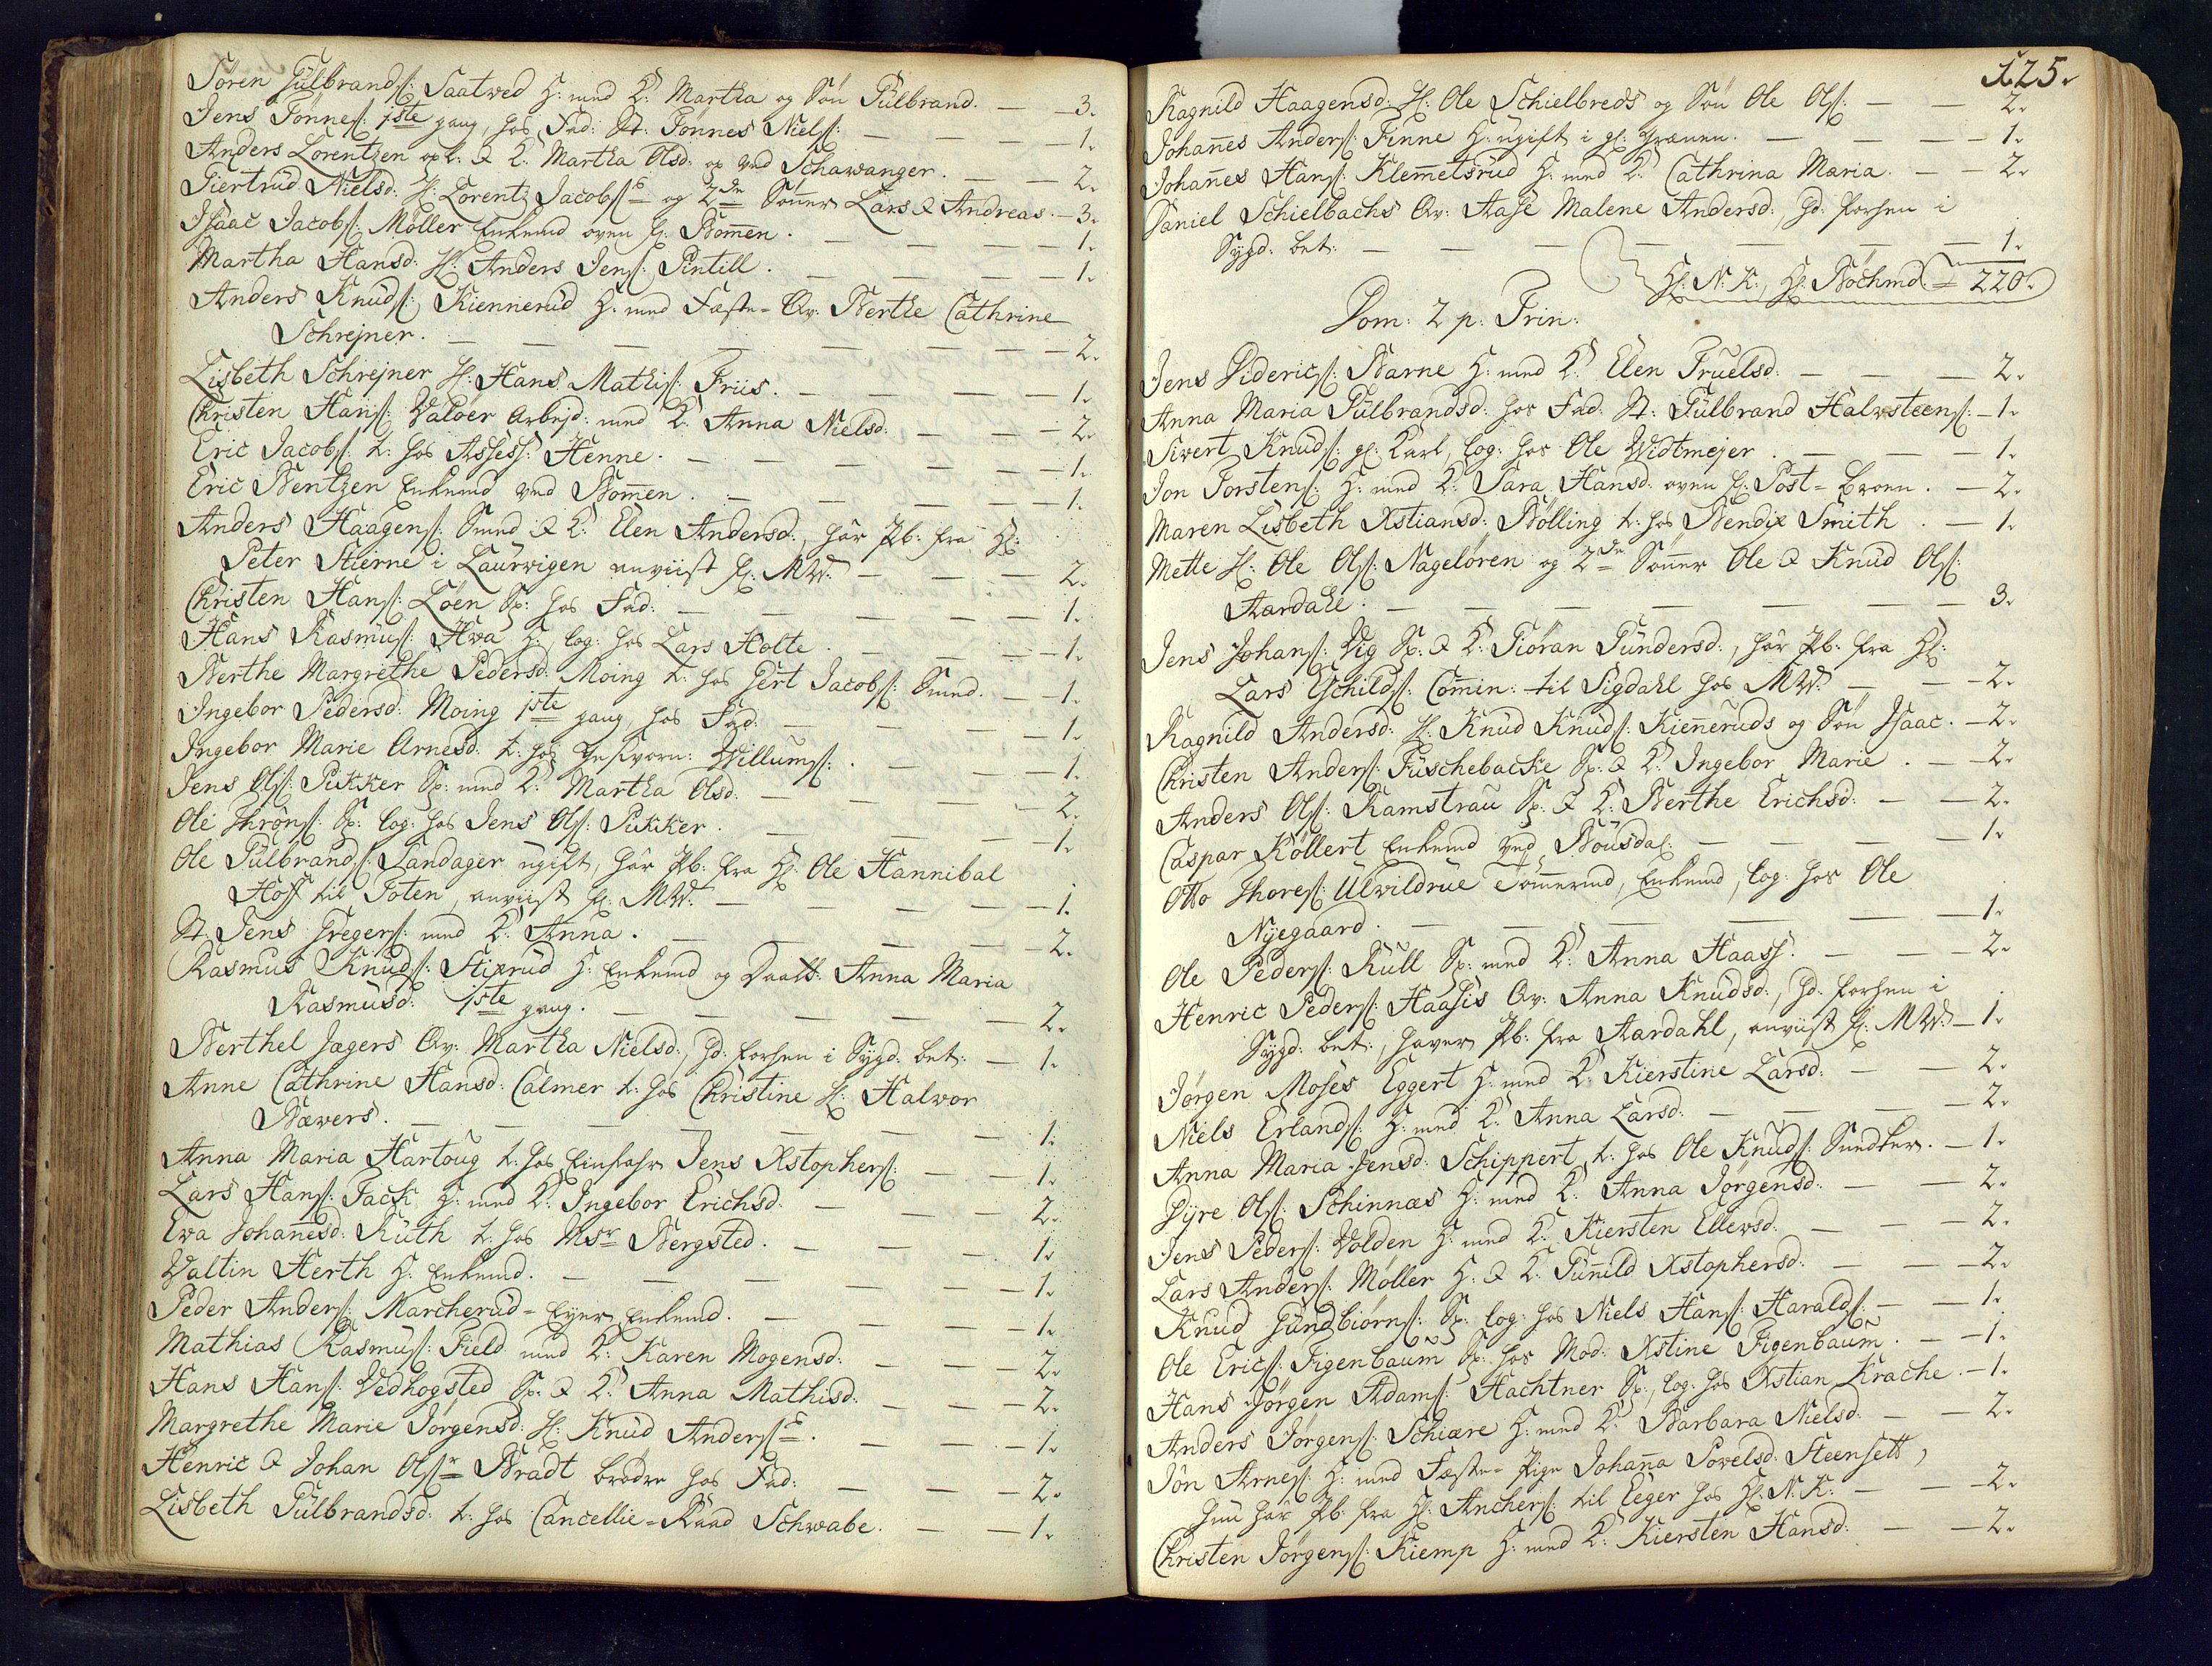 Søren Gulbrands: Saatved H: med K: Martha og Søn Gulbrand. — 3.
Jens Tønnes: 1ste gang, hos Fad: St: Tønnes Niels: — 1.
Anders Lorentzen opl: & K: Martha Olsd: op ved Schawanger. — 2.
Giertrud Nielsd: H: Lorentz Jacobs: og 2de Sønner Lars & Andreas. — 3.
Isaac Jacobs: Møller Enkemd oven f: Bommen. — 1.
Martha Hansd: H: Anders Jens: Pintill. — 1.
Anders Knuds: Kiennerud H: med Fæste-Qv: Berthe Cathrine
Schrejner. — 2.
Lisbeth Schrejner H: Hans Mathis: Friis. — 1.
Christen Hans: Valøer Arbejd: med K: Anna Nielsd: — 2.
Eric Jacobs: t: hos Assess: Henne. — 1.
Eric Bentzen Enkemd ved Bommen. — 1.
Anders Haagens: Smed & K: Elen Andersd:, har Pb: fra H:
Peter Stierne i Laurvigen anviist f: MW: — 2.
Christen Hans: Løen Sp: hos Fad: — 1.
Hans Rasmus: Hva H: log: hos Lars Holte. — 1.
Berthe Margrethe Pedersd: Moing t: hos Gert Jacobs: Smed. — 1.
Ingebor Pedersd: Moing 1ste gang, hos Fad: — 1.
Ingebor Marie Arnesd: t: hos Geschworn: Willums: — 1.
Jens Ols: Pikker Sp: med K: Martha Olsd: — 2.
Ole Throns: Sp: log: hos Jens Ols: Pikker. — 1.
Ole Gulbrands: Sandager ugift, har Pb: fra H: Ole Hannibal
Hoff til Toten, anviist f: MW: — 1.
St: Jens Gregers: med K: Anna. — 2.
Rasmus Knuds: Stixrud H: Enkemd og Daatt: Anna Maria
Rasmusd: 1ste gang. — 2.
Berthel Jægers Qv: Martha Nielsd:, Gd: forhen i Sygd: bet: — 1.
Anne Cathrine Hansd: Calmer t: hos Christine H: Halvor
Bævers. — 1.
Anna Maria Hartoug t: hos Einfahr Jens Xstophers: — 1.
Lars Hans: Fack H: med K: Ingebor Erichsd: — 2.
Eva Johannesd: Ruth t: hos Msr Bergsted. — 1.
Valtin Herth H: Enkemd. — 1.
Peder Anders: Marcherud-Eyer Enkemd. — 1.
Mathias Rasmus: Field med K: Karen Mogensd: — 2.
Hans Hans: Vedhogsted Sp: & K: Anna Mathisd: — 2.
Margrethe Marie Jørgensd: H: Knud Anders: — 1.
Henric & Johan Ols: Bradt brødre hos Fad: — 2.
Lisbeth Gulbrandsd: t: hos Cancellie-Raad Schwabe. — 1.
125.
Ragnild Haagensd: H: Ole Schielbreds og Søn Ole Ols: — 2.
Johannes Anders: Finne H: ugift i gl: — 1.
Johannes Hans: Klemmetsrud H: med K: Cathrina Maria. — 2.
Daniel Schielbachs Qv: Aase Malene Andersd:, Gd: forhen i
Sygd: bet: — 1.
H: N: K:, H: Bochmd: = 220.
Dom: 2 p: Trin:
Jens Dideric: Barne H: med K: Elen Truelsd: — 2.
Anna Maria Gulbrandsd: hos Fad: St: Gulbrand Halvsteens: — 1.
Sivert Knuds: gl: Karl, log: hos Ole Widtmejer. — 1.
Jon Torstens: H: med K: Sara Hansd: oven f: Post-Broen. — 2.
Maren Lisbeth Xstiansd: Bølling t: hos Bendix Smith. — 1.
Mette H: Ole Ols: Nageløren og 2de Sønner Ole & Knud Ols:
Aardahl. — 3.
Jens Johans: Vig Sp: & K: Giøran Gundersd:, har Pb: fra H:
Lars Eschilds: Comin: til Sigdahl hos MW: — 2.
Ragnild Andersd: H: Knud Knuds: Kienneruds og Søn Isaac. — 2.
Christen Anders: Fuschebacke Sp: & K: Ingebor Marie. — 2.
Anders Ols: Ramstrau Sp: & K: Berthe Erichsd: — 2.
Caspar Kollert Enkemd ved Bousdal: — 1.
Otto Thores: Ulvildrue Tømmermd, Enkemd, log: hos Ole
Nyegaard. — 1.
Ole Peders: Kull Sp: med K: Anna Haass. — 2.
Henric Peders: Haasis Qv: Anna Knudsd:, Gd: forhen i
Sygd: bet:, haver Pb: fra Aardahl, anviist f: MW: — 1.
Jørgen Moses Eggert H: med K: Kierstine Larsd: — 2.
Niels Erlands: H: med K: Anna Larsd: — 2.
Anna Maria Jensd: Schippert t: hos Ole Knuds: — 1.
Dyre Ols: Schinnæs H: med K: Anna Jørgensd: — 2.
Jens Peders: Volden H: med K: Kiersten Ellevsd: — 2.
Lars Anders: Møller H: & K: Gunnild Xstophersd: — 2.
Knud Gundbiørns: Sp: log: hos Niels Hans: Haralds: — 1.
Ole Erics: Figenbaum Sp: hos Mod: Xstine Figenbaum. — 1.
Hans Jørgen Adams: Hachtner Sp:, log: hos Xstian Krache. — 1.
Anders Jørgens: Schiære H: med K: Barbara Nielsd: — 2.
Jøn Arnes: H: med Fæste-Pige Johanna Povelsd: Steensett,
hun har Pb: fra H: Anchers: til Eeger hos H: N: K: — 2.
Christen Jørgens: Kiemp H: med K: Kiersten Hansd: — 2.